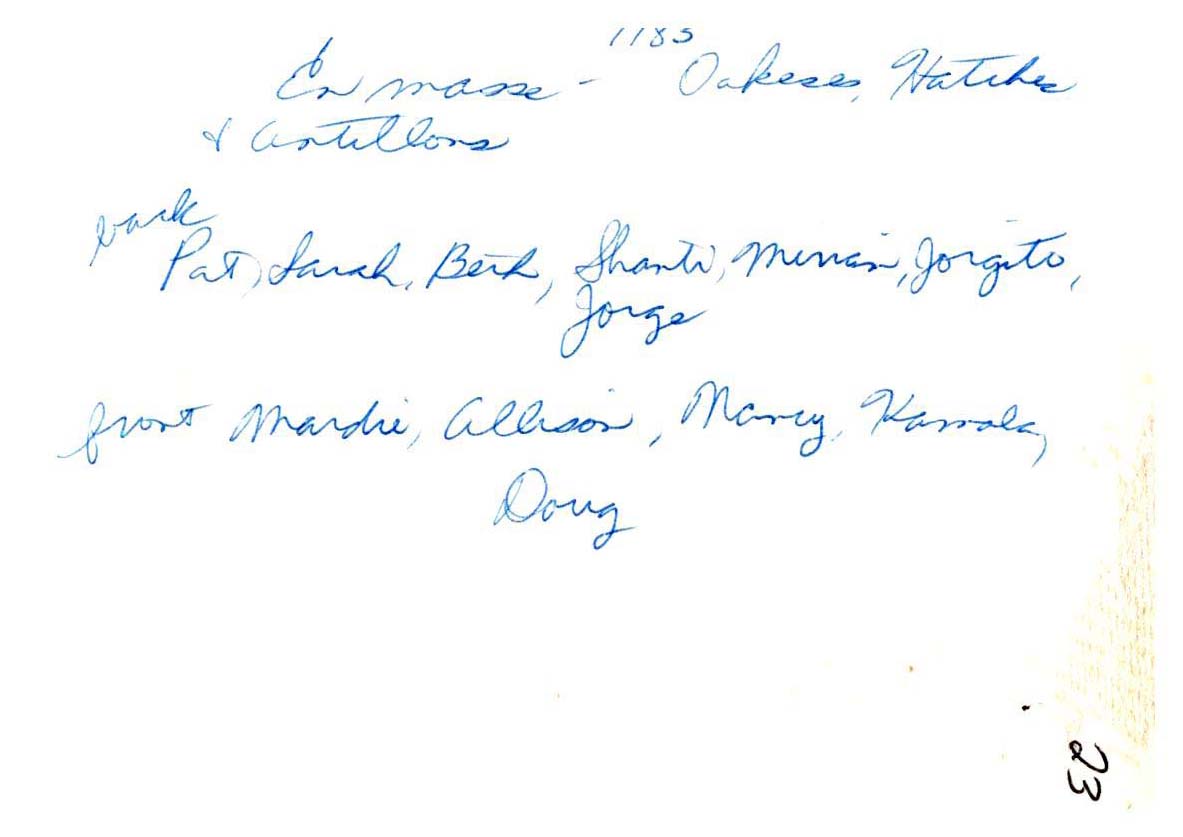 1185
En masse - Oakeses, Hatches
& Antillons
back
Pat, Sarah, Beth, Shanti, Mirrian, Jorgito,
Jorge
front Mardie, Allison, Nancy, Kamala,
Doug
23